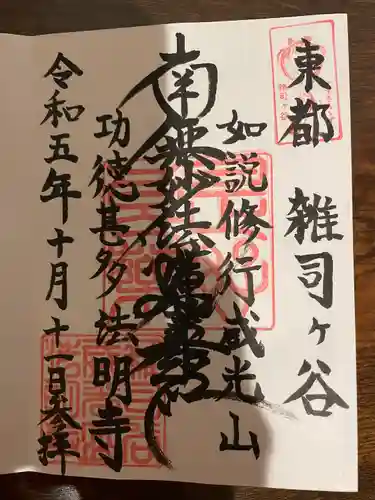 東都 雑司ヶ谷
如説修行 威光山
南無妙法蓮華経
功徳甚多 法明寺
令和五年十月十一日参拝